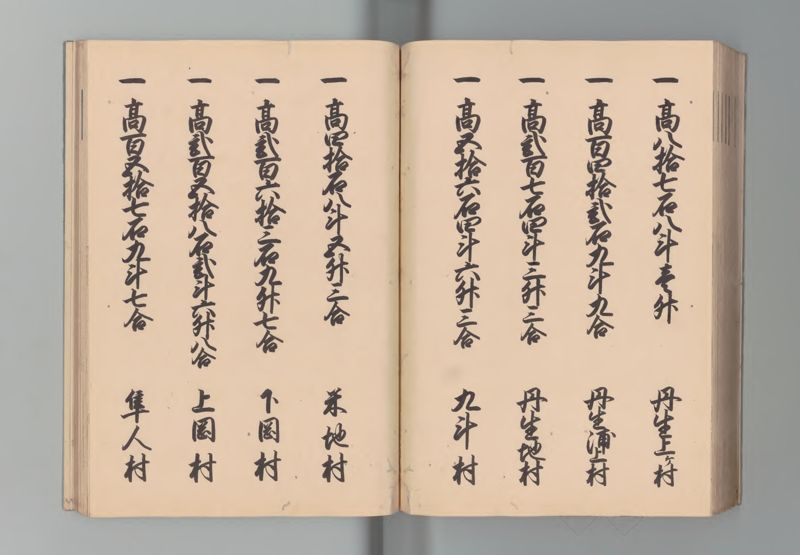 一 高八拾七石八斗壱升 丹生上ヶ村
一 高百四拾弐石九斗九合 丹生浦上村
一 高弐百七石四斗三升三合 丹生地村
一 高五拾六石四斗六升三合 九斗村
一 高四拾石八斗五升三合 米地村
一 高弐百六拾三石九升七合 下岡村
一 高弐百五拾八石弐斗六升八合 上岡村
一 高百五拾七石九斗七合 隼人村